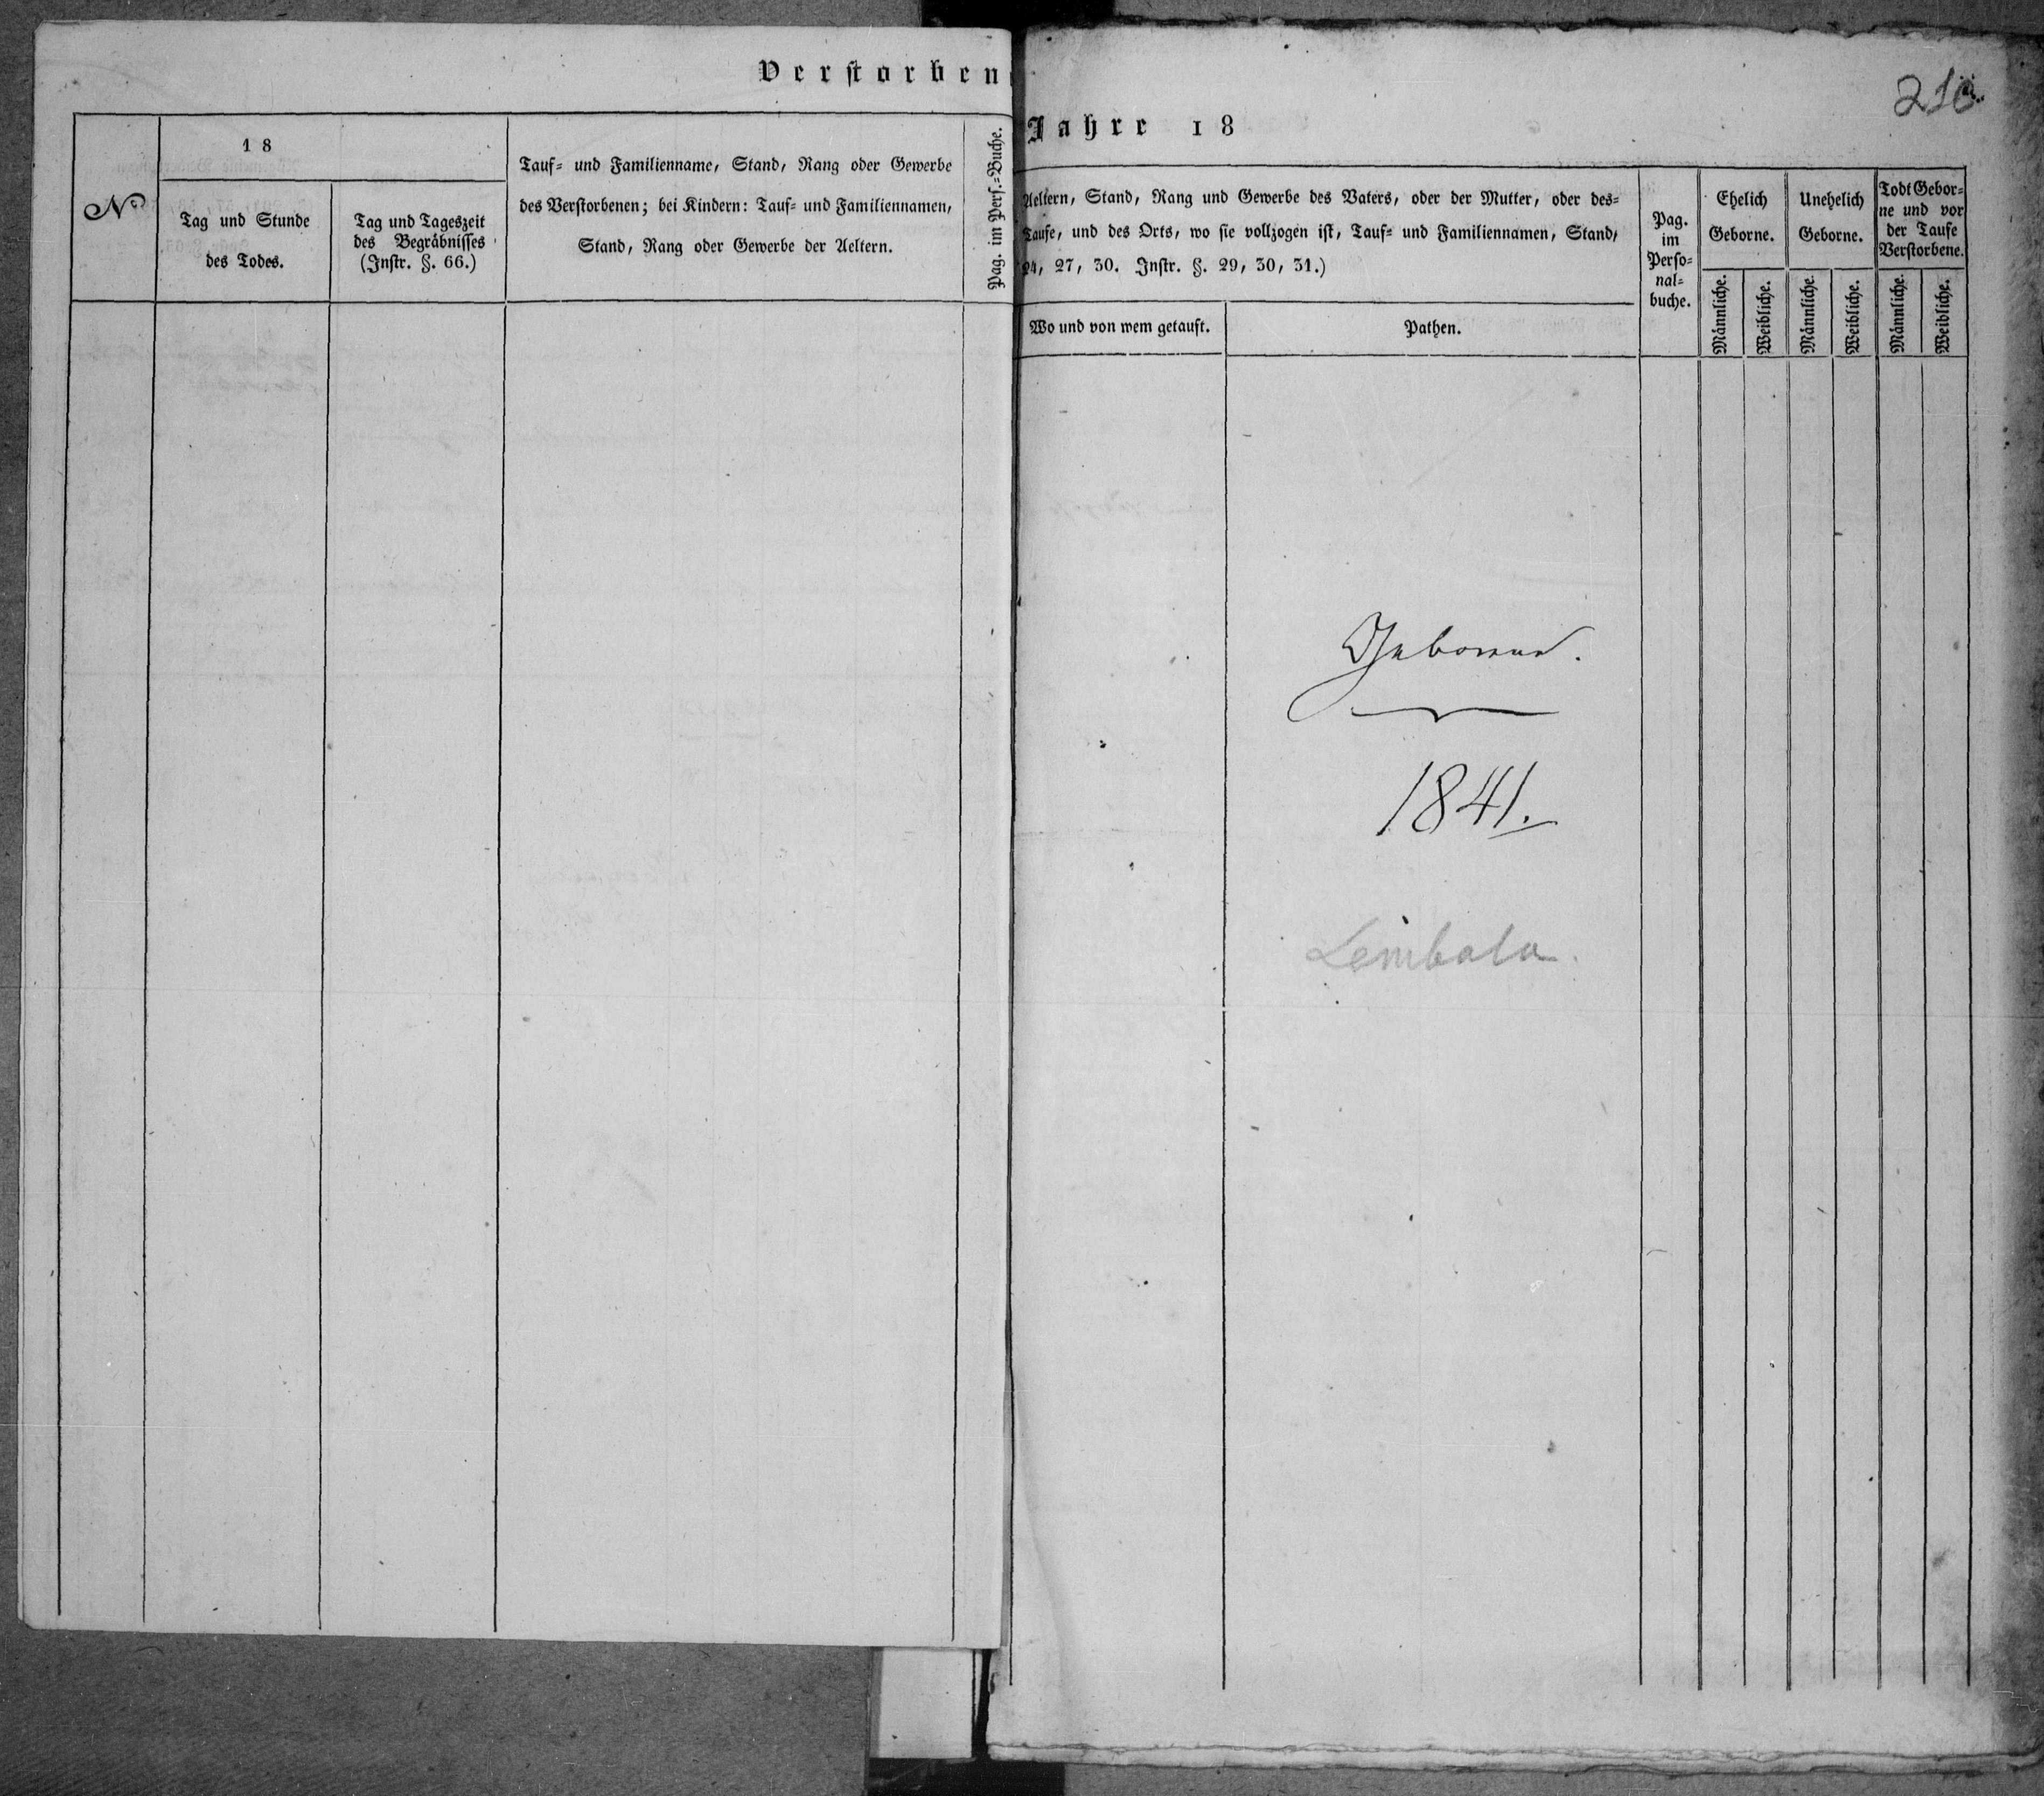 Verstorben
18
N
Tag und Stunde
des Todes.
Tag und Tageszeit
des Begräbnisses
(Instr. §. 66.)
Tauf- und Familienname, Stand, Rang oder Gewerbe
des Verstorbenen; bei Kindern: Tauf- und Familiennamen,
Stand, Rang oder Gewerbe der Aeltern.
Pag. im Pers.-Buche.
Jahre 18
Aeltern, Stand, Rang und Gewerbe des Vaters, oder der Mutter, oder des-
Taufe, und des Orts, wo sie vollzogen ist, Tauf- und Familiennamen, Stand,
24, 27, 30. Instr. §. 29, 30, 31.)
Wo und von wem getauft.
Pathen.
Pag.
im
Perso-
nal-
buche.
Ehelich
Geborne.
Männliche.
Weibliche.
Unehelich
Geborne.
Männliche.
Weibliche.
Todt Gebor-
ne und vor
der Taufe
Verstorbene.
Männliche.
Weibliche.
Geborene.
1841.